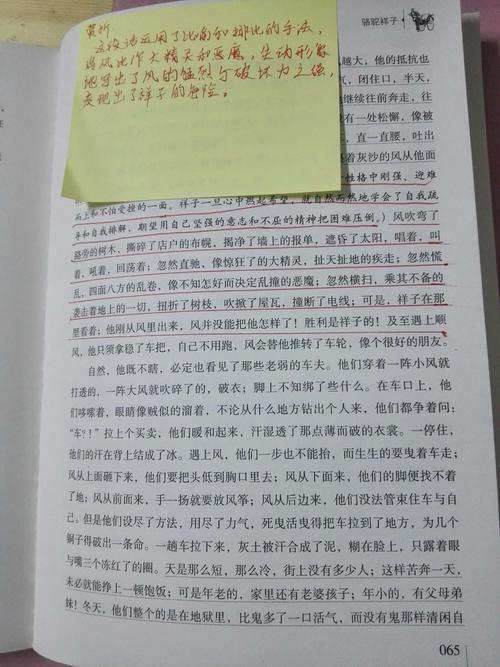 骆驼祥子
赏析:
这段话运用了比喻和排比的手法,
将风比作大精灵和恶魔,生动形象
地写出了风的猛烈与破坏力之强,
表现出了祥子的危险。
越大,他的抵抗也
气,闭住口,半天,
地继续往前奔走,往
有一处松懈,像被
,直一直腰,吐出
着灰沙的风从他面
性格中刚强、迎难
而上和不怕受挫的一面。祥子一旦心中燃起希望,就自然而然地学会了自我疏
导和自我排解,期望用自己坚强的意志和不屈的精神把困难压倒。)风吹弯了
路旁的树木,撕碎了店户的布幌,揭净了墙上的报单,遮昏了太阳,唱着,叫
着,吼着,回荡着;忽然直驰,像惊狂了的大精灵,扯天扯地的疾走;忽然慌
乱,四面八方的乱卷,像不知怎好而决定乱撞的恶魔;忽然横扫,乘其不备的
袭击着地上的一切,扭折了树枝,吹掀了屋瓦,撞断了电线;可是,祥子在那
里看着;他刚从风里出来,风并没能把他怎样了!胜利是祥子的!及至遇上顺
风,他只须拿稳了车把,自己不用跑,风会替他推转了车轮,像个很好的朋友。
自然,他既不瞎,必定也看见了那些老弱的车夫。他们穿着一阵小风就
打透的,一阵大风就吹碎了的,破衣;脚上不知绑了些什么。在车口上,他
们哆嗦着,眼睛像贼似的溜着,不论从什么地方钻出个人来,他们都争着问:
“车?!”拉上个买卖,他们暖和起来,汗湿透了那点薄而破的衣裳。一停住,
他们的汗在背上结成了冰。遇上风,他们一步也不能抬,而生生的要曳着车走;
风从上面砸下来,他们要把头低到胸口里去;风从下面来,他们的脚便找不着
了地;风从前面来,手一扬就要放风筝;风从后边来,他们没法管束住车与自
己。但是他们设尽了方法,用尽了力气,死曳活曳得把车拉到了地方,为几个
铜子得破出一条命。一趟车拉下来,灰土被汗合成了泥,糊在脸上,只露着眼
与嘴三个冻红了的圈。天是那么短,那么冷,街上没有多少人;这样苦奔一天,
未必就能挣上一顿饱饭;可是年老的,家里还有老婆孩子;年小的,有父母弟
妹!冬天,他们整个的是在地狱里,比鬼多了一口活气,而没有鬼那样清闲自
065